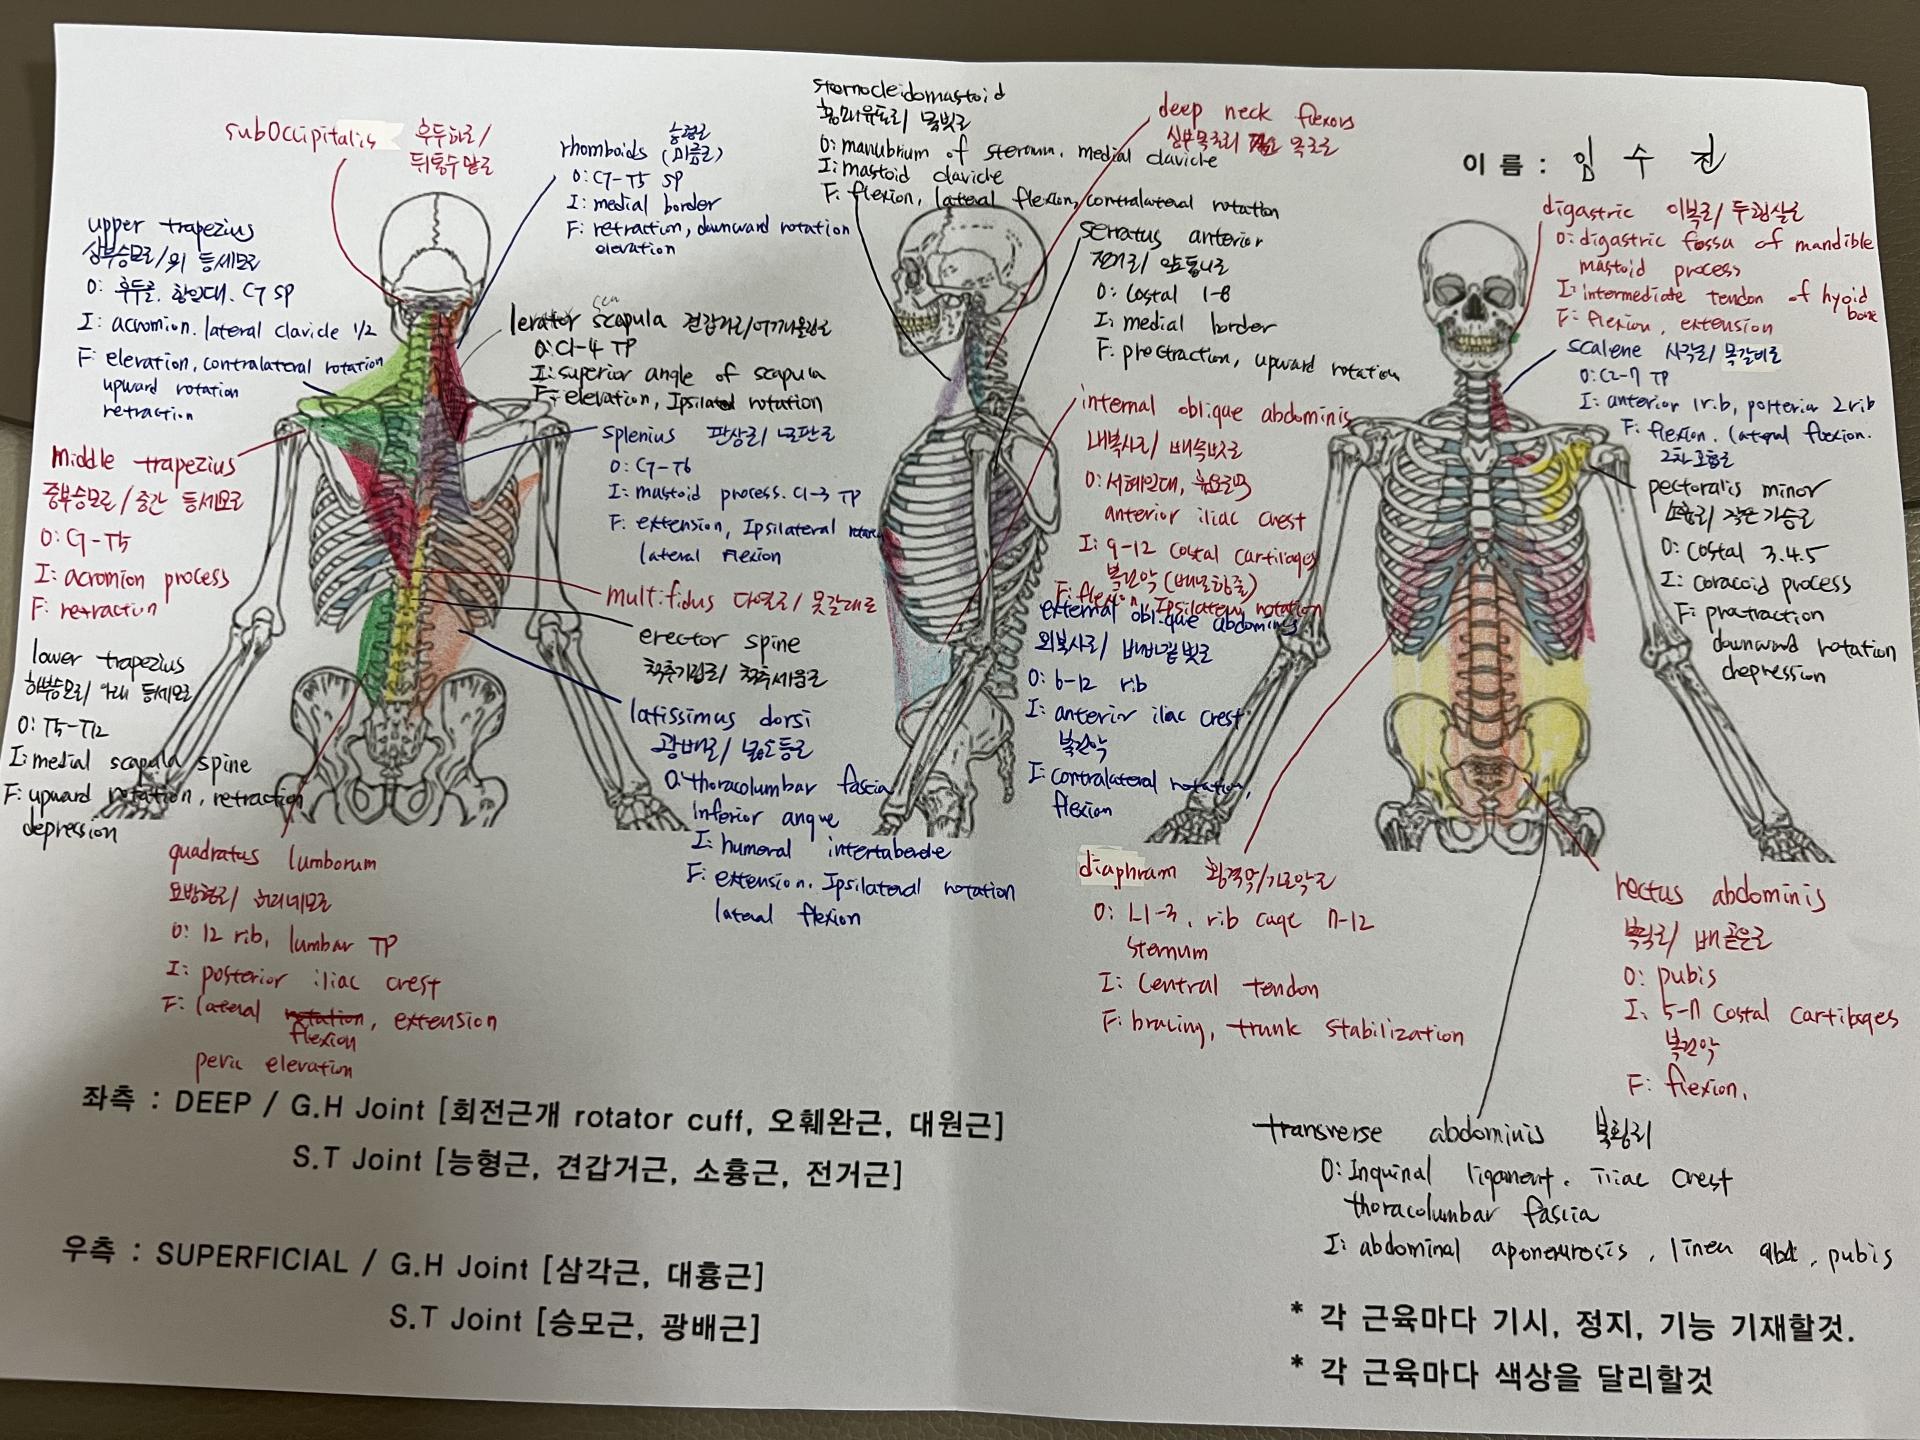 subOccipitalis 후두하근/
뒤통수밑근
upper trapezius
상부승모근/위 등세모근
O: 후두골. 항인대. C7 SP
I: acromion. lateral clavicle 1/2
F: elevation, contralateral rotation
upward rotation
retraction
middle trapezius
중부승모근/중간 등세모근
O: C7-T5
I: acromion process
F: retraction
lower trapezius
하부승모근/아래 등세모근
O: T5-T12
I: medial scapula spine
F: upward rotation, retraction
depression
quadratus lumborum
요방형근/허리네모근
O: 12 rib, lumbar TP
I: posterior iliac crest
F: lateral rotation, extension
flexion
pevic elevation
능형근
rhomboids (마름근)
O: C7-T5 SP
I: medial border
F: retraction, downward rotation
elevation
levator scapula 견갑거근/어깨올림근
O: C1-4 TP
I: superior angle of scapula
F: elevation, Ipsilateral rotation
splenius 판상근/널판근
O: C7-T6
I: mastoid process. C1-3 TP
F: extension, Ipsilateral rotation
lateral flexion
multifidus 다열근/뭇갈래근
erector spine
척추기립근/척추세움근
latissimus dorsi
광배근/넓은등근
O: thoracolumbar fascia
inferior angve
I: humeral
F: extension. Ipsilateral rotation
lateral flexion
sternocleidomastoid
흉쇄유돌근/목빗근
O: manubrium of sternum. medial clavicle
I: mastoid clavicle
F: flexion, lateral flexion, contralateral rotation
deep neck flexors
심부목근 목근
serratus anterior
전거근/앞톱니근
O: costal 1-8
I: medial border
F: protraction, upward rotation
internal oblique abdominis
내복사근/배속빗근
O: 서혜인대,
anterior iliac crest
I: 9-12 costal cartilages
복건막 (배널힘줄)
F: flexion, Ipsilateral rotation
external oblique abdominis
외복사근/배바깥빗근
O: 6-12 rib
I: anterior iliac crest
복건막
I: contralateral rotation,
flexion
diaphram 횡격막/가로막근
O: L1-3, rib cage 7-12
sternum
I: central tendon
F: bracing, trunk stabilization
이름 : 임 수 진
digastric 이복근/두힘살근
O: digastric fossa of mandible
mastoid process
I: intermediate tendon of hyoid
bone
F: flexion, extension
scalene 사각근/목갈비근
O: C2-7 TP
I: anterior 1rib, porterior 2rib
F: flexion. lateral flexion.
2차 호흡근
pectoralis minor
소흉근/작은가슴근
O: costal 3.4.5
I: coracoid process
F: protraction
downward rotation
depression
rectus abdominis
복직근/배곧은근
O: pubis
I: 5-7 costal cartilages
복건막
F: flexion,
transverse abdominis 복횡근
O: Inquinal ligament. iliac crest
thoracolumbar fascia
I: abdominal aponeurosis, linea alba, pubis
좌측 : DEEP / G.H Joint [회전근개 rotator cuff, 오훼완근, 대원근]
S.T Joint [능형근, 견갑거근, 소흉근, 전거근]
우측 : SUPERFICIAL / G.H Joint [삼각근, 대흉근]
S.T Joint [승모근, 광배근]
* 각 근육마다 기시, 정지, 기능 기재할것.
* 각 근육마다 색상을 달리할것